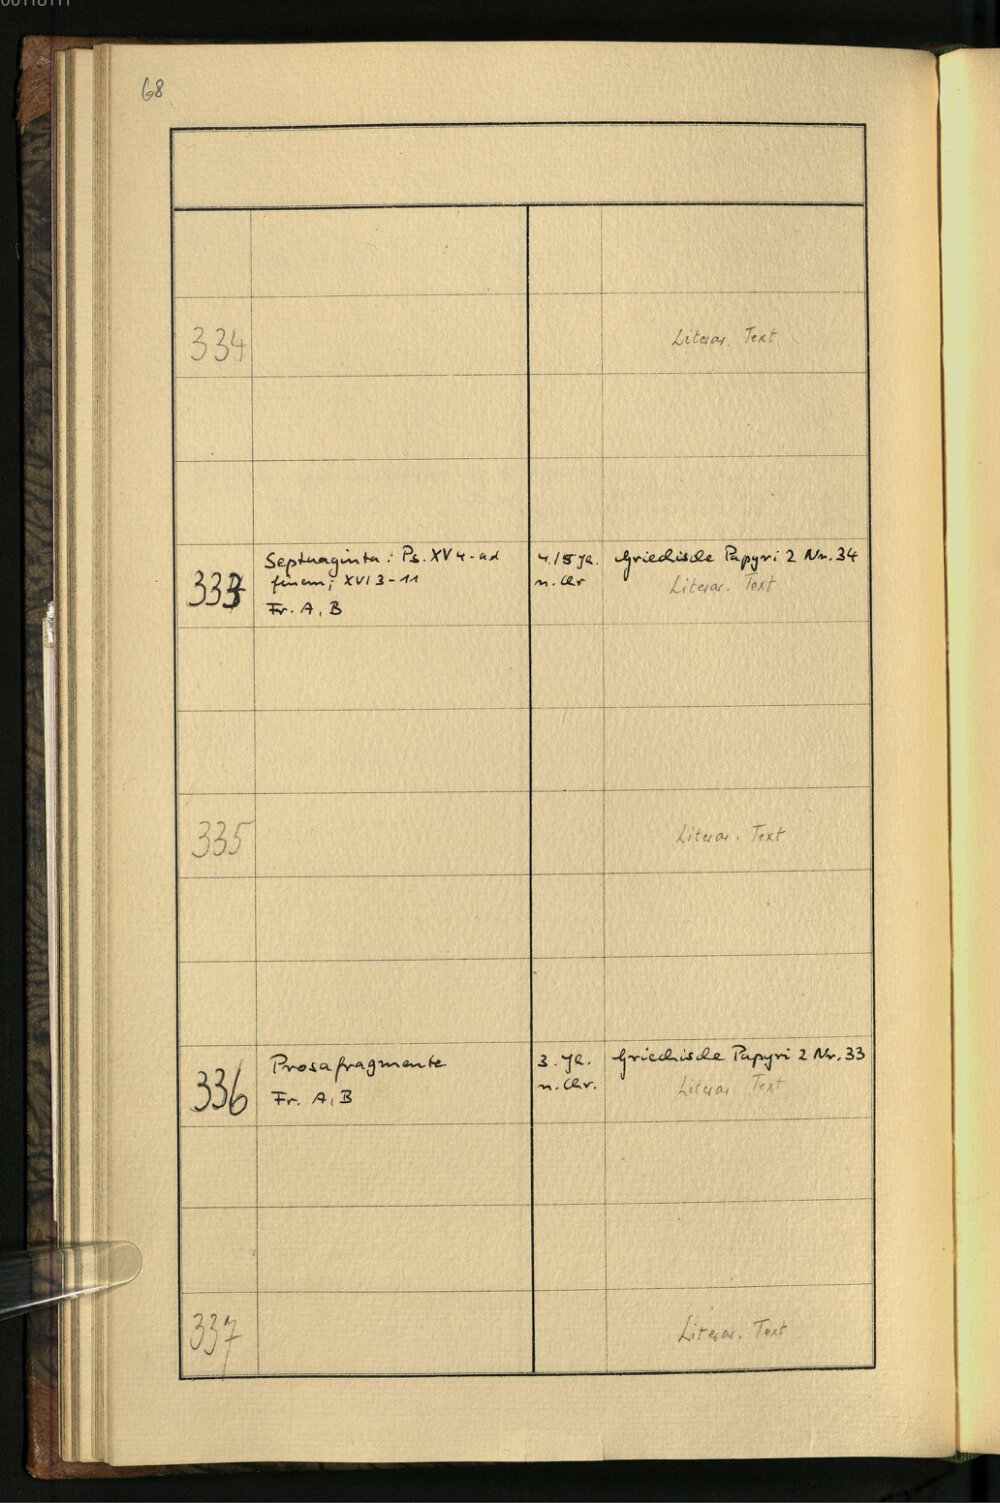 68
334 Literar. Text
Septuaginta: Ps. XV 4-ad 4./5 Jh. Griechische Papyri 2 Nr. 34
333 finem; XVI 3-11 n. Chr Literar. Text
Fr. A, B
335 Literar. Text
Prosafragmente 3. Jh. Griechische Papyri 2 Nr. 33
336 Fr. A, B n. Chr. Literar. Text
337 Literar. Text